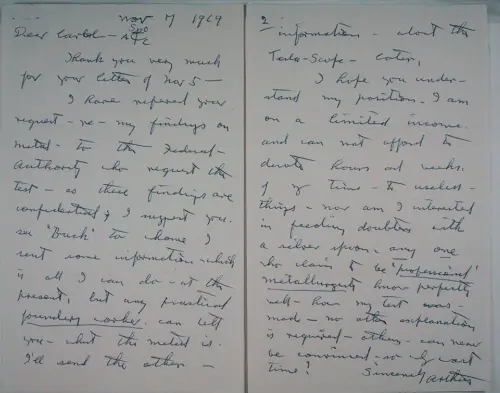 Nov 7 1969
Dear Carol -
Thank you very much
for your letter of Nov 5 -
I have refered your
request - re - my findings on
metal - to the Federal -
Authority who request the
test - as these findings are
confidential & I suggest you
see "Buck" to whome I
sent some information which
is all I can do - at the
present, but any practical
foundery worker can tell
you - what the metal is.
I'll send the other -
2
information - about the
Tesla-Scope - later,
I hope you under-
stand my position. I am
on a limited income.
and can not afford to
devote hours and weeks.
of my time - to useless -
things - nor am I interested
in feeding doubters with
a silver spoon - any one
who claim to be "professional"
metallurgists know perfectly
well - how my test was -
made - no other explanation
is required - others - can never
be convinced - so why wast
time! Sincerely Arthur